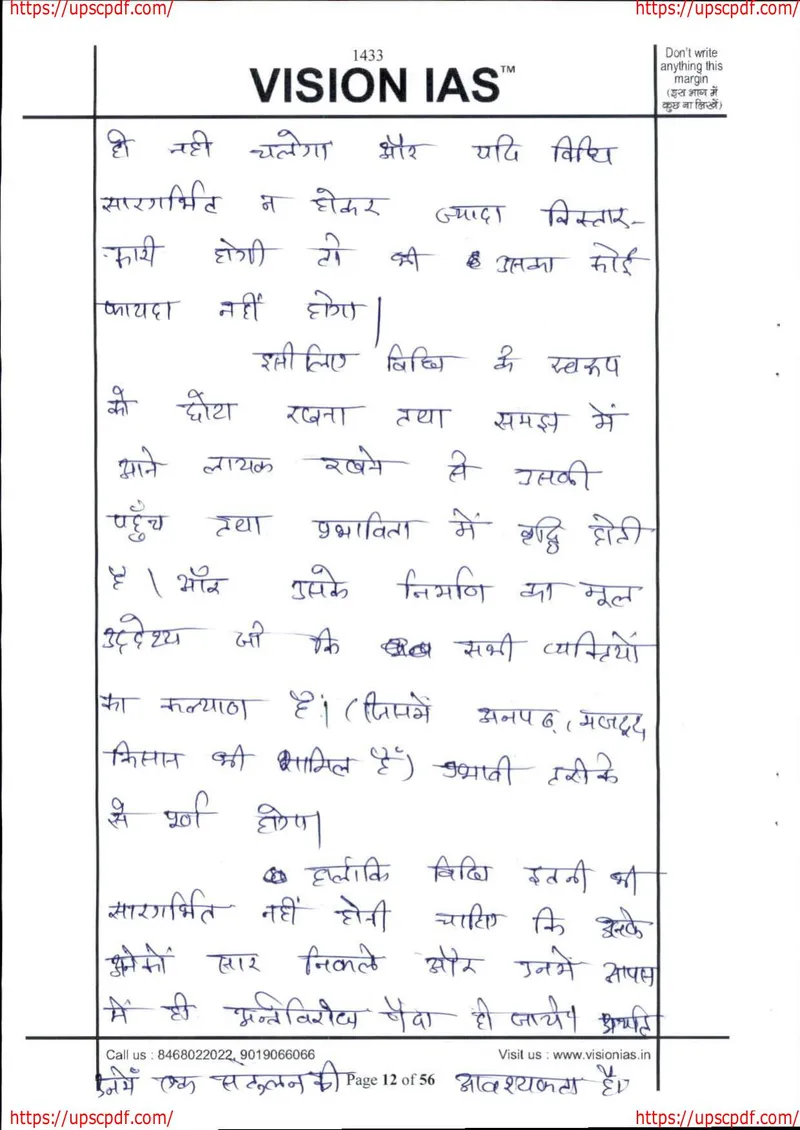 https://upscpdf.com/ https://upscpdf.com/
1433
VISION IAS™
Don't write
anything this
margin
(इस भाग में
कुछ ना लिखें)
ही नही चलेगा और यदि विधि
सारगर्भित न होकर ज्यादा विस्तार-
कारी होगी तो भी उसका कोई
फायदा नहीं होगा|
इसीलिए विधि के स्वरूप
को छोटा रखना तथा समझ में
आने लायक रखने से उसकी
पहुँच तथा प्रभाविता में वृद्धि होती
है | और उसके निर्माण का मूल
उद्देश्य जो कि सभी व्यक्तियों
का कल्याण है। (जिसमें अनपढ़, मजदूद
किसान भी शामिल हैं) प्रभावी तरीके
से पूर्ण होगा|
हालांकि विधि इतनी भी
सारगर्भित नहीं होनी चाहिए कि उसके
अनेकों सार निकले और उनमें आपस
में ही अन्तर्विरोध पैदा हो जाये। अर्थात
Call us : 8468022022, 9019066066 Visit us : www.visionias.in
इनमें एक संतुलन की Page 12 of 56 आवश्यकता है।
https://upscpdf.com/ https://upscpdf.com/